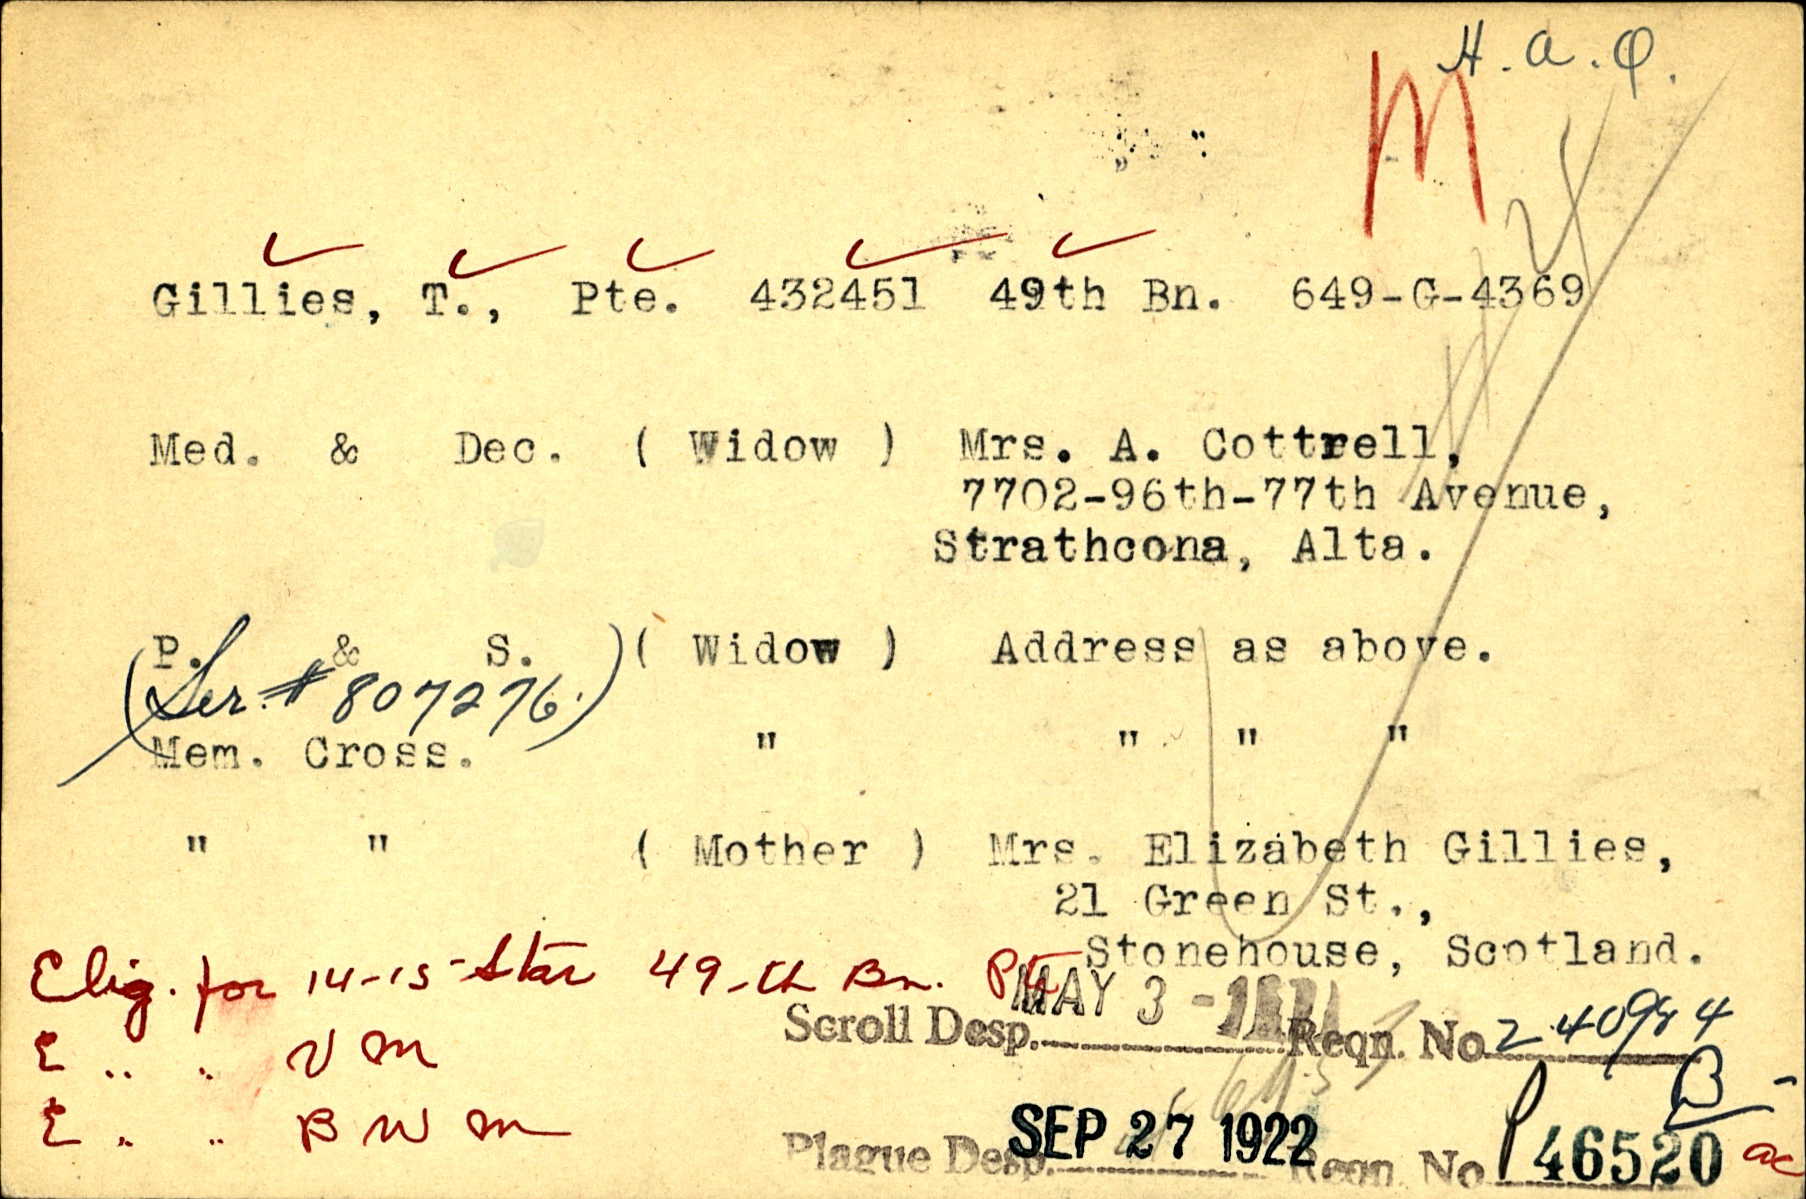 H. a. Q.
M
Gillies, T., Pte. 432451 49th Bn. 649-G-4369
Med. & Dec. ( Widow ) Mrs. A. Cottrell,
7702-96th-77th Avenue,
Strathcona, Alta.
P. & S. ( Widow ) Address as above.
(Ser # 807276.)
Mem. Cross. " " " "
" " ( Mother ) Mrs. Elizabeth Gillies,
21 Green St.,
Stonehouse, Scotland.
Elig. for 14-15 Star 49-th Bn. Pte
MAY 3 -
Scroll Desp. Reqn. No 240984
E " " V M
B
E " " B W M
SEP 27 1922
Plague Desp. Reqn. No P 46520 ac